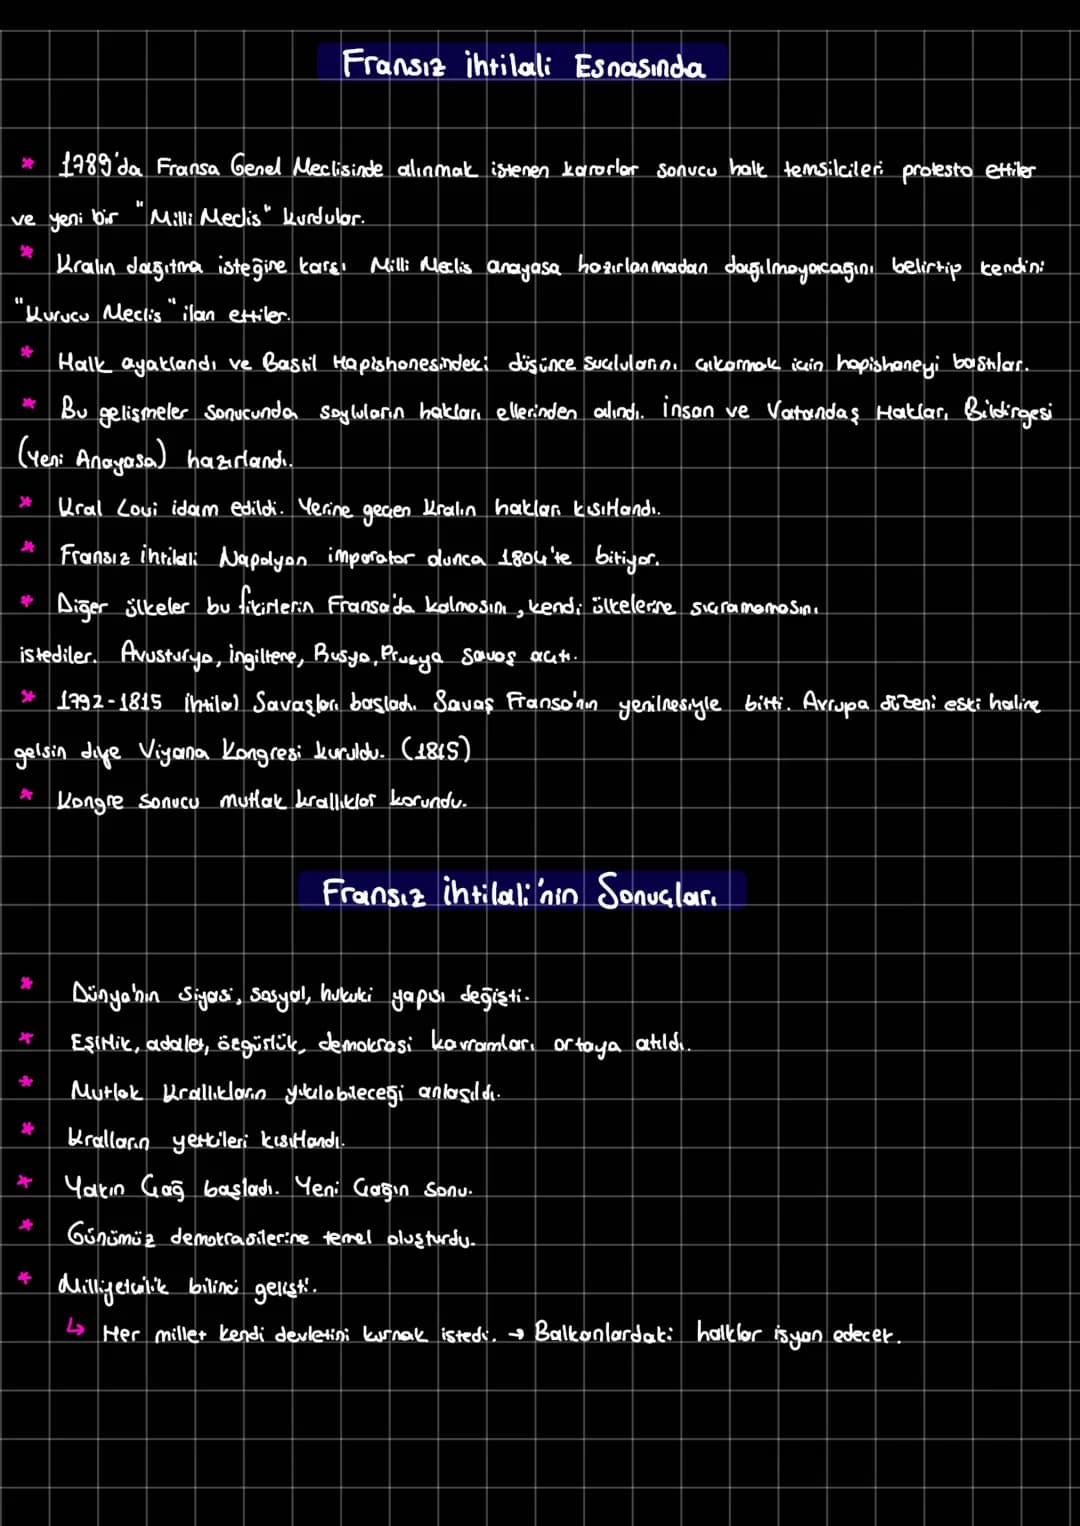 Fransız ihtilali Esnasında
* 1789'da Fransa Genel Meclisinde alınmak istenen kararlar sonucu halk temsilcileri protesto ettiler
ve yeni bir "Milli Meclis" kurdular.
* Kralın dağıtma isteğine karşı Milli Meclis anayasa hazırlanmadan dağılmayacağını belirtip kendini
"Kurucu Meclis" ilan ettiler.
* Halk ayaklandı ve Bastil Hapishanesindeki düşünce suçlularını çıkarmak için hapishaneyi bastılar.
* Bu gelişmeler sonucunda soyluların hakları ellerinden alındı. İnsan ve Vatandaş Hakları Bildirgesi
(Yeni Anayasa) hazırlandı.
* Kral Loui idam edildi. Yerine geçen Kralın hakları kısıtlandı.
* Fransız ihtilali Napolyon imparator olunca 1804'te bitiyor.
* Diğer ülkeler bu fikirlerin Fransa'da kalmasını, kendi ülkelerine sıçramamasını
istediler. Avusturya, İngiltere, Rusya, Prusya savaş açtı.
* 1792-1815 İhtilal Savaşları başladı. Savaş Fransa'nın yenilmesiyle bitti. Avrupa düzeni eski haline
gelsin diye Viyana Kongresi kuruldu. (1815)
* Kongre sonucu mutlak krallıklar korundu.
Fransız İhtilali'nin Sonuçları
* Dünya'nın siyasi, sosyal, hukuki yapısı değişti.
* Eşitlik, adalet, özgürlük, demokrasi kavramları ortaya atıldı.
* Mutlak Krallıkların yıkılabileceği anlaşıldı.
* Kralların yetkileri kısıtlandı.
* Yakın Çağ başladı. Yeni Çağın sonu.
* Günümüz demokrasilerine temel oluşturdu.
* Milliyetçilik bilinci gelişti.
↳ Her millet kendi devletini kurmak istedi. → Balkanlardaki halklar isyan edecek.